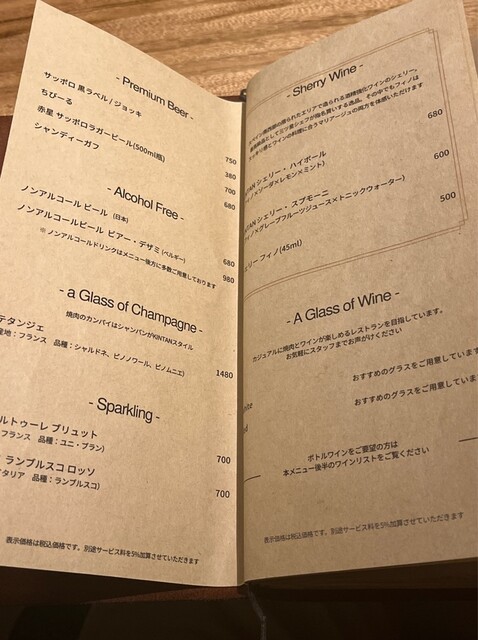 - Premium Beer -
サッポロ 黒ラベル / ジョッキ 750
ちびーる 380
赤星 サッポロラガービール(500ml瓶) 700
シャンディーガフ 680
- Alcohol Free -
ノンアルコールビール (日本) 680
ノンアルコールビール ビアー・デザミ (ベルギー) 980
※ ノンアルコールドリンクはメニュー後方に多数ご用意しております
- a Glass of Champagne -
焼肉のカンパイはシャンパンがKINTANスタイル
テタンジェ 1480
産地：フランス 品種：シャルドネ、ピノノワール、ピノムニエ)
- Sparkling -
ルトゥーレ ブリュット 700
フランス 品種：ユニ・ブラン)
ランブルスコ ロッソ 700
タリア 品種：ランブルスコ)
表示価格は税込価格です。別途サービス料を5%加算させていただきます
- Sherry Wine -
の限られたエリアで造られる酒精強化ワインのシェリー。
として三ツ星シェフが指名買いする逸品。その中でもフィノは
ワインの料理に合うマリアージュの両方を体感いただけます
TAN シェリー・ハイボール 680
ィノ×ソーダ×レモン×ミント)
TAN シェリー・スプモーニ 600
ィノ×グレープフルーツジュース×トニックウォーター)
ェリー フィノ (45ml) 500
- A Glass of Wine -
カジュアルに焼肉とワインが楽しめるレストランを目指しています。
お気軽にスタッフまでお声がけください
おすすめのグラスをご用意しています
おすすめのグラスをご用意しています
ボトルワインをご要望の方は
本メニュー後半のワインリストをご覧ください
表示価格は税込価格です。別途サービス料を5%加算させていただきます